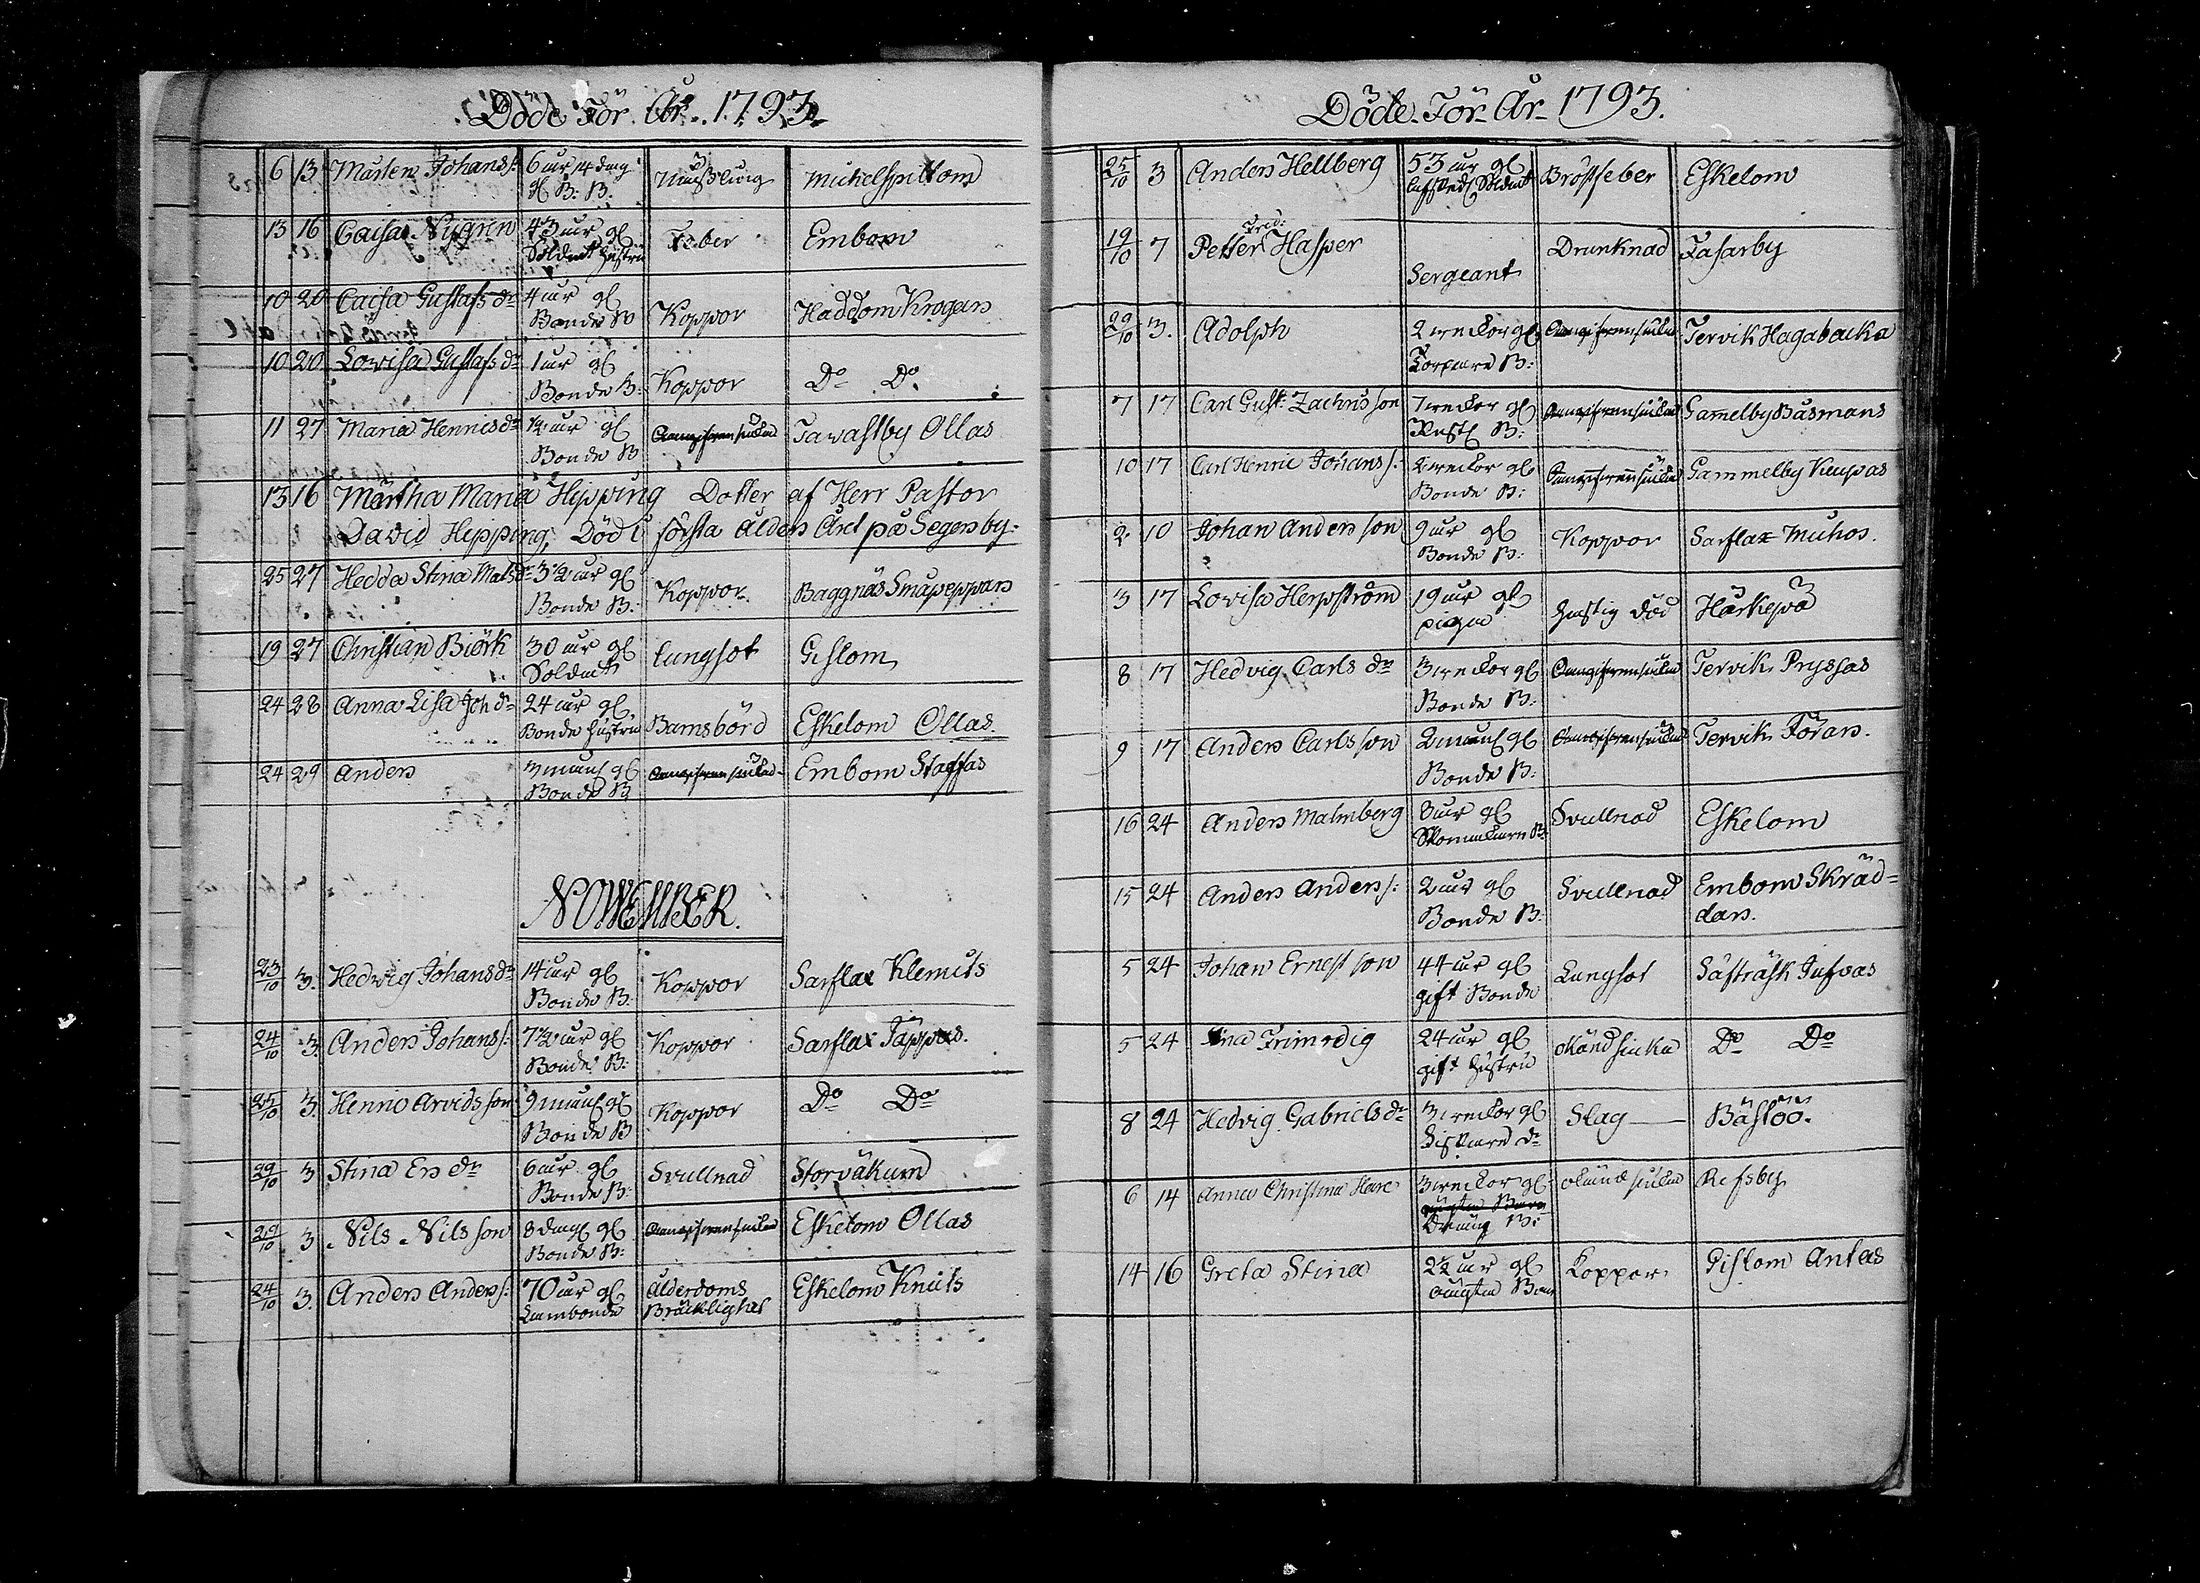 Döde För År 1793.
6 13 Mårten Johanss: 6 år 14 dag gl B: B: Michelspiltom
13 16 Caisa Nygren 43 år gl Soldat hustru Feber Embom
10 20 Caisa Gustafs dr 4 år gl Bonde B Koppor Haddom Krogars
10 20 Lovisa Gustafs dr 1 år gl Bonde B: Koppor Do Do
11 27 Maria Henricsdr 1/2 år gl Bonde B Oangifvensiukd Tavastby Ollas
13 16 Märtha Maria Hipping Dotter af Herr Pastor
David Hipping, Död i första ålders året på Segersby.
25 27 Hedda Stina Matsdr 3 1/2 år gl Bonde B: Koppor Baggnäs Småpeppars
19 27 Christian Biörk 30 år gl Soldat lungsot Gislom
24 28 Anna Lisa Joh dr 24 år gl Bonde hustru Barnsbörd Eskelom Ollas
24 29 Anders 3 månd gl Bonde B Oangifvensiukd Embom Staffas
NOWEMBER.
23/10 3. Hedvig Johansdr 14 år gl Bonde B: Koppor Sarflax Klemets
24/10 3. Anders Johanss: 7 1/2 år gl Bonde B: Koppor Sarflax Täppas.
25/10 3. Henric Arvidsson 9 månd gl Bonde B Koppor Do Do
29/10 3 Stina Ers dr 6 år gl Bonde B: Svullnad Storvåkum
29/10 3 Nils Nilsson 8 dag gl Bonde B: Oangifvensiukd Eskelom Ollas
24/10 3. Anders Anderss: 70 år gl Ålderdoms Bräcklighet Eskelom Knuts
Döde För År 1793.
25/10 3 Anders Hellberg 53 år gl afsked Soldat Bröstfeber Eskelom
19/10 7 Petter Hasper Sergeant Drunknad Tasarby
29/10 3. Adolph 2 veckor gl Torpare B: Oangifvensiukd Tervik Hagabacka
7 17 Carl Gust: Zachrisson 7 veckor gl Rust B: Oangifvensiukd Gamelby Båsmans
10 17 Carl Henric Johanss: 2 veckor gl Bonde B: Oangifvensiukd Gammelby Keupas
2 10 Johan Andersson 9 år gl Bonde B: Koppor Sarflax Muhos.
3 17 Lovisa Herpström 19 år gl piga hastig död Härkepä
8 17 Hedvig Carls dr 3 veckor gl Bonde B: Oangifvensiukd Tervik Pryssas
9 17 Anders Carlsson 2 månd gl Bonde B: Oangifvensiukd Tervik Förars.
16 24 Anders Malmberg 3 år gl Skomakare B: Svullnad Eskelom
15 24 Anders Anderss: 2 år gl Bonde B: Svullnad Embom Skräd=
dars.
5 24 Johan Ernestson 44 år gl gift Bonde Lungsot Säfträsk Jufvas
5 24 Stina Frimodig 24 år gl gift hustru okänd siuka Do Do
8 24 Hedvig Gabrielsdr 3 veckor gl Fiskare dr Slag Bästöö.
6 14 Anna Christina Hare 3 veckor gl Dräng B: okänd siukd Refsby
14 16 Greta Stina 2 1/2 år gl Koppor Gislom Antas